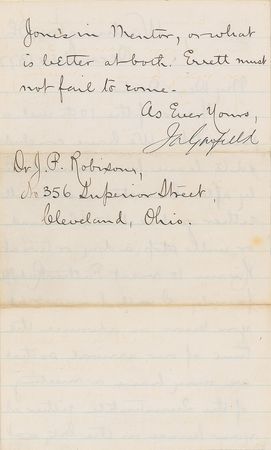 Jones in Mentor, or what
is better at both. Errett must
not fail to come.
As Ever Yours,
JAGarfield
Dr J. P. Robison,
No 356 Superior Street,
Cleveland, Ohio.